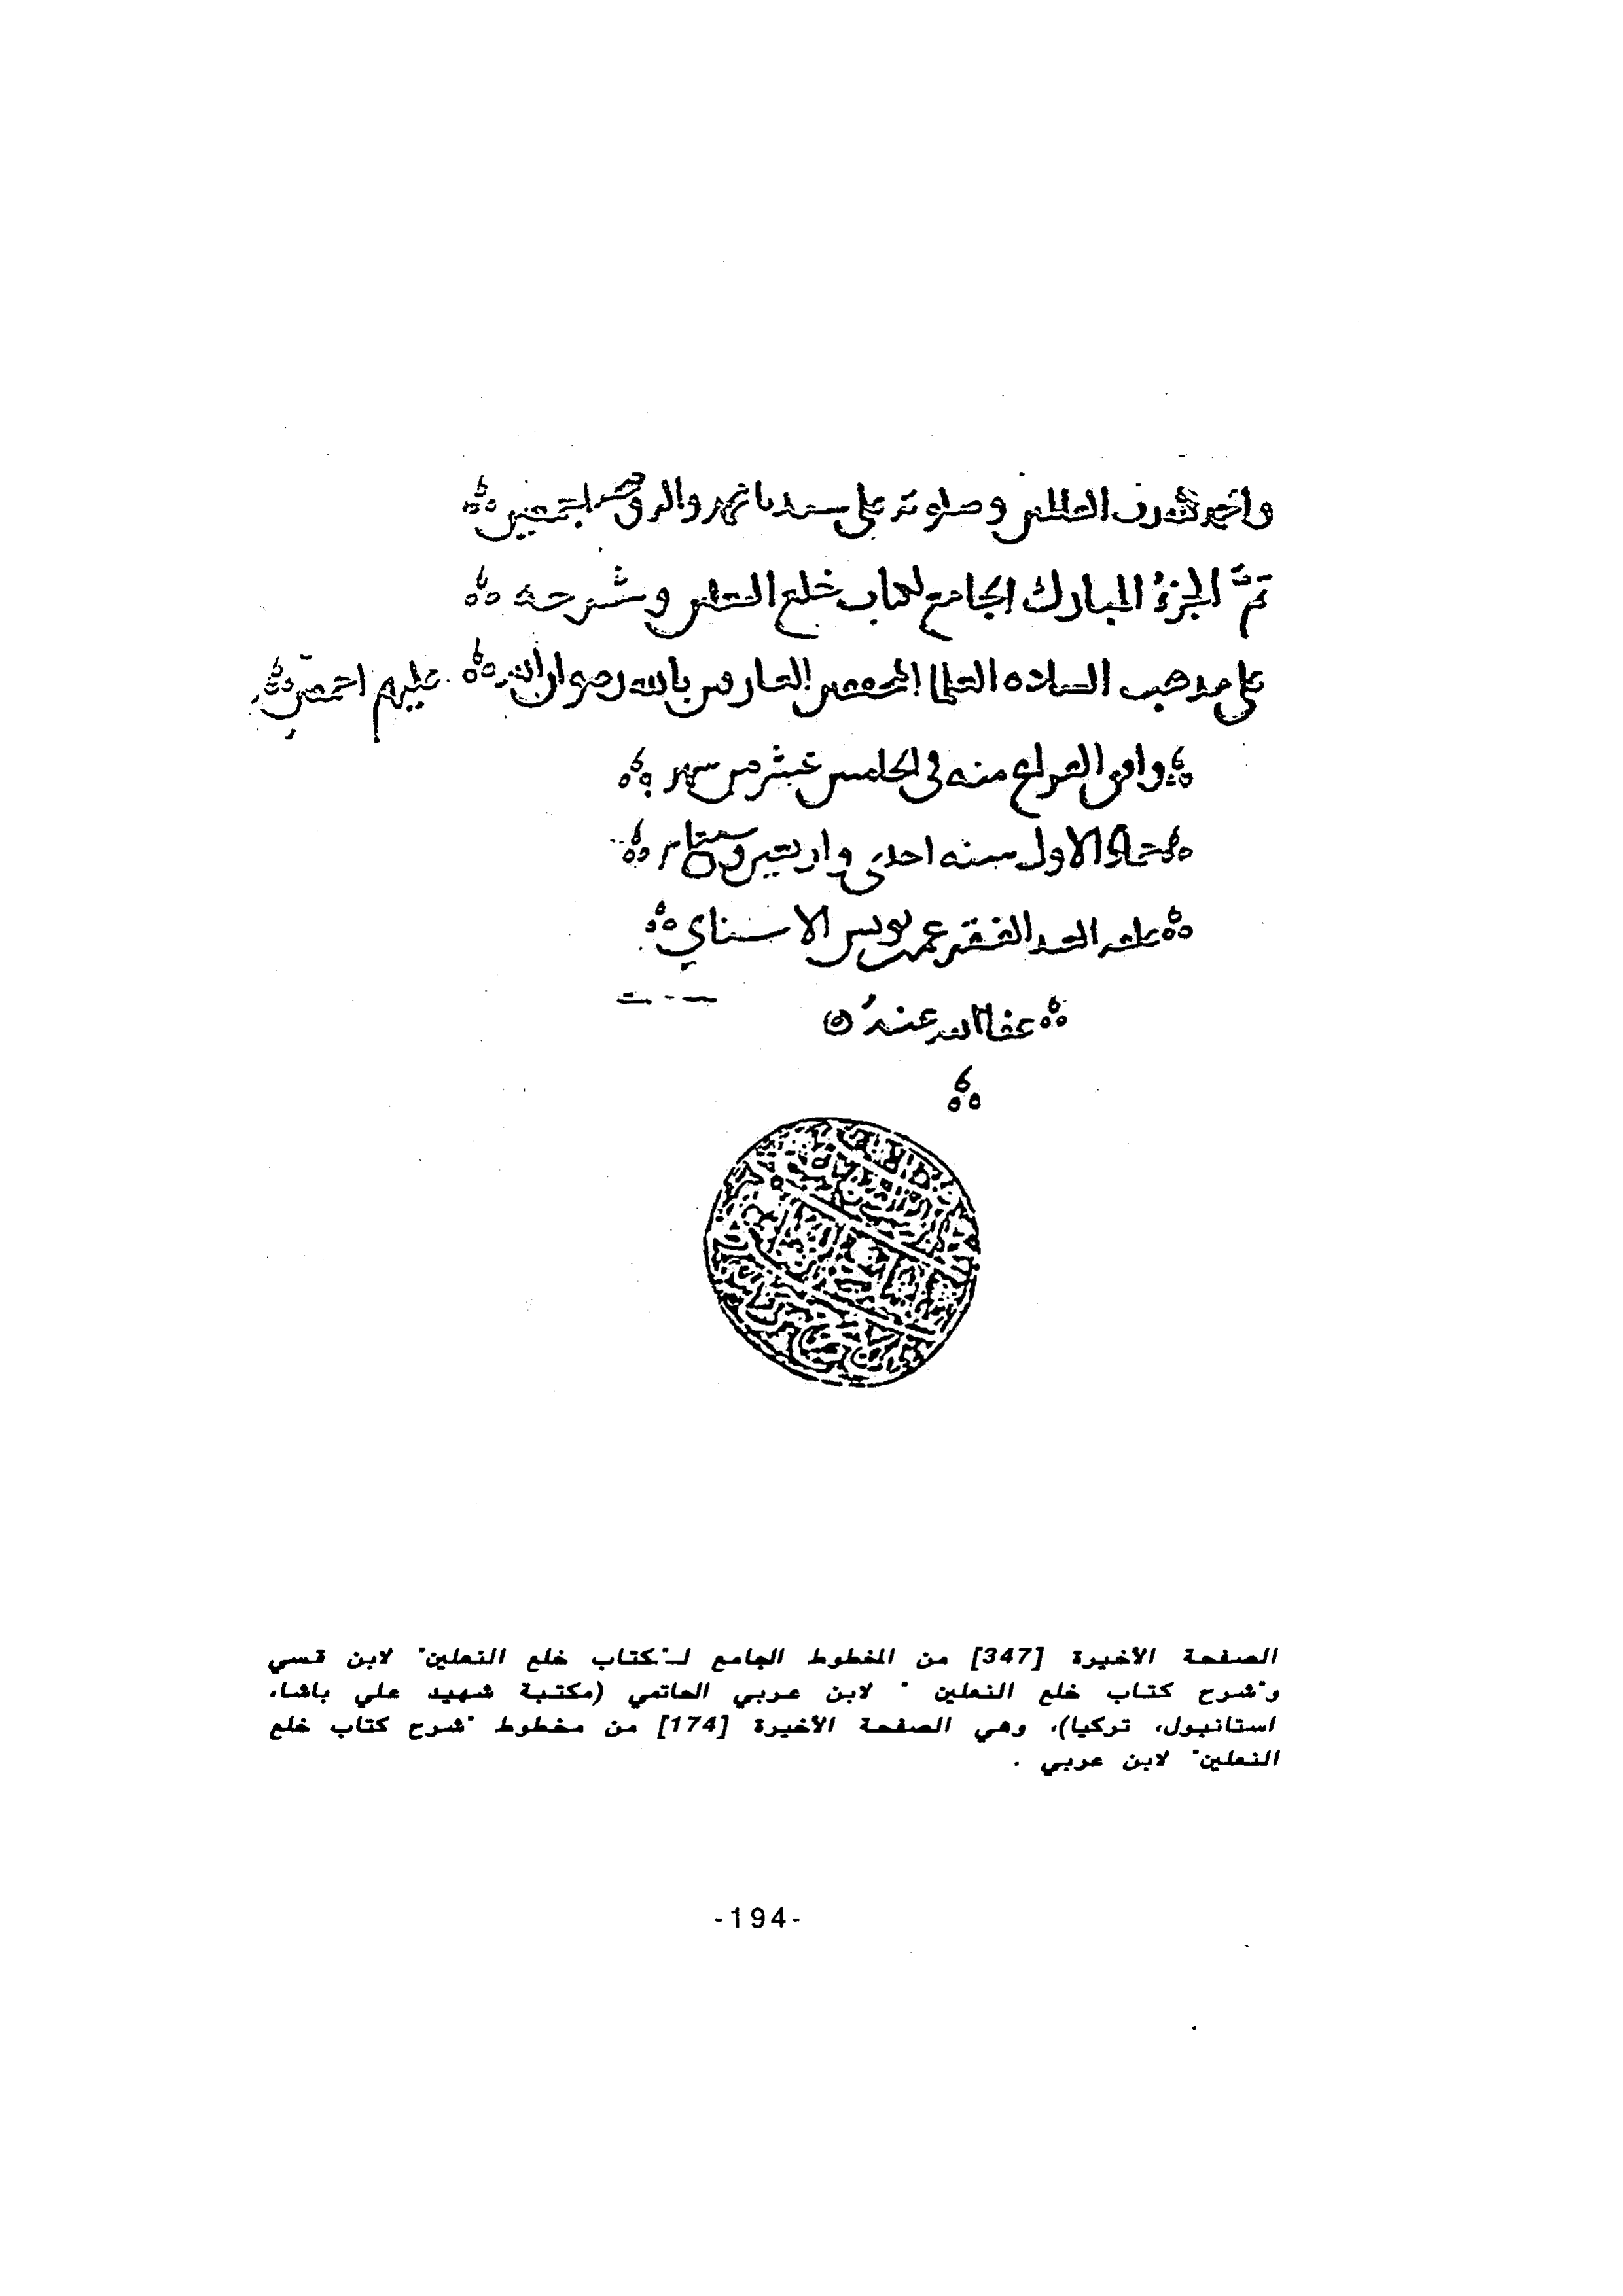 والحمد لله رب العالمين وصلوته على سيدنا محمد واله وصحبه اجمعين
تم الجزء المبارك الجامع لكتاب خلع النعلين وشرحه
على مذهب الساده العلما المحققين العارفين بالله رضوان الله عليهم اجمعين
وافق الفراغ منه في الخامس عشر من شهر
جمادى الاول سنه احدى واربعين وسبعمائة
علقه العبد الفقير عمر بن يونس الاسناي
عفا الله عنه
الصفحة الأخيرة [347] من المخطوط الجامع لـ"كتاب خلع النعلين" لابن قسي
و"شرح كتاب خلع النعلين " لابن عربي الحاتمي (مكتبة شهيد علي باشا،
استانبول، تركيا)، وهي الصفحة الأخيرة [174] من مخطوط "شرح كتاب خلع
النعلين" لابن عربي .
-194-